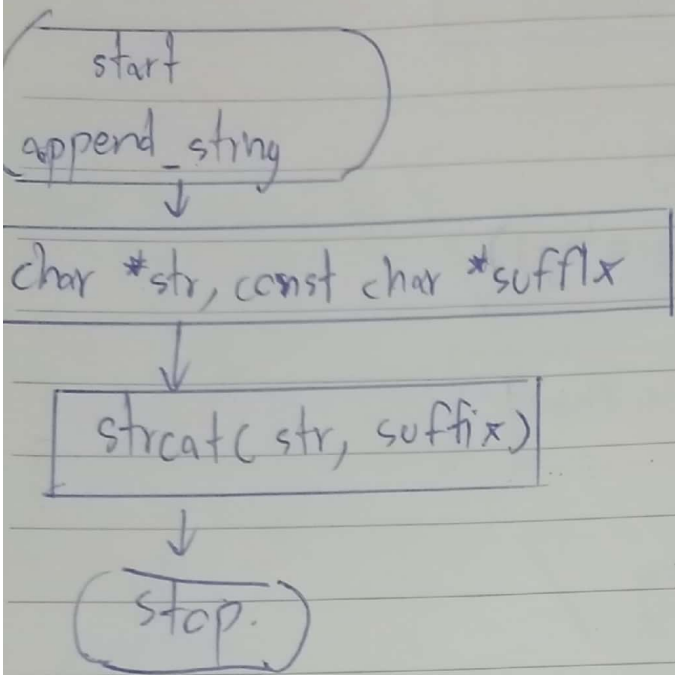 start
append_string
char *str, const char *suffix
strcat( str, suffix)
stop.